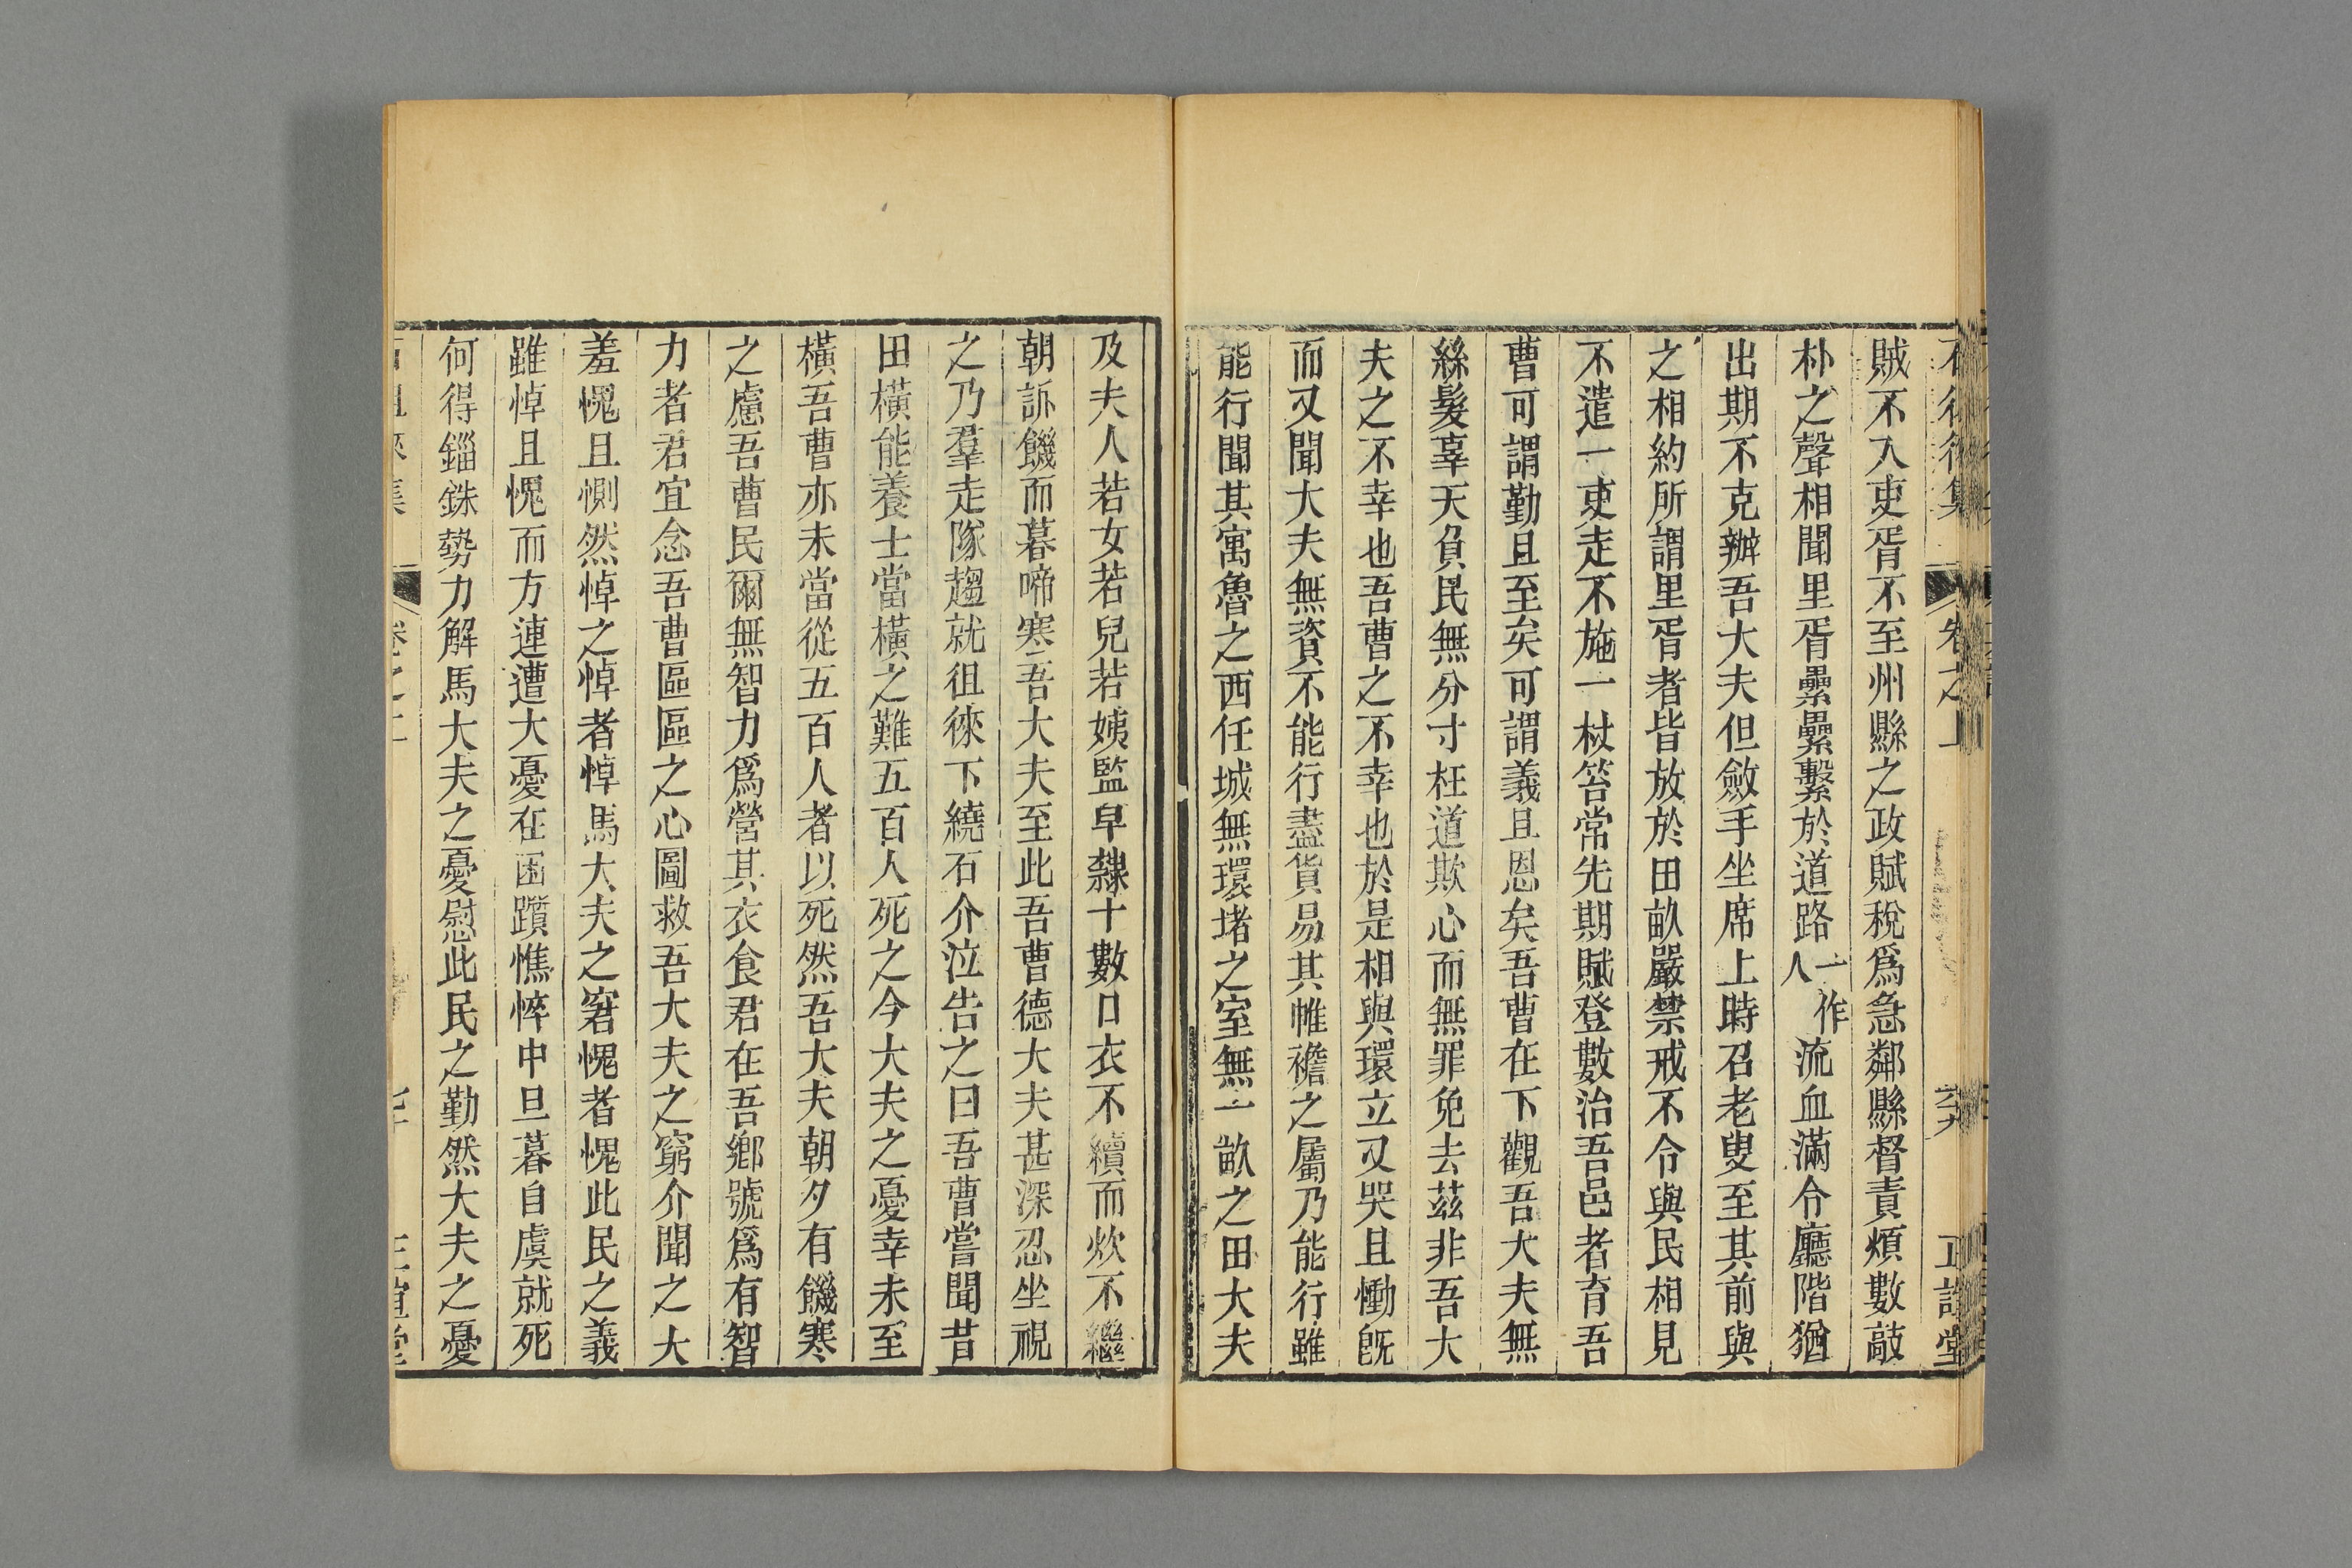 卷之上 六 正誼堂
賊不入吏胥不至州縣之政賦稅爲急鄰縣督責煩數敲
朴之聲相聞里胥纍纍繫於道路一作人流血滿令廳階猶
出期不克辦吾大夫但斂手坐席上時召老叟至其前與
之相約所謂里胥者皆放於田畝嚴禁戒不令與民相見
不遣一吏走不施一杖笞常先期賦登數治吾邑者育吾
曹可謂勤且至矣可謂義且恩矣吾曹在下觀吾大夫無
絲髮辜天負民無分寸枉道欺心而無罪免去茲非吾大
夫之不幸也吾曹之不幸也於是相與環立又哭且慟旣
而又聞大夫無資不能行盡貨易其帷襜之屬乃能行雖
能行聞其寓魯之西任城無環堵之室無一畝之田大夫
及夫人若女若兒若姨監皁隸十數口衣不續而炊不繼
朝訴饑而暮啼寒吾大夫至此吾曹德大夫甚深忍坐視
之乃羣走隊趨就徂徠下繞石介泣告之曰吾曹嘗聞昔
田橫能養士當橫之難五百人死之今大夫之憂幸未至
橫吾曹亦未當從五百人者以死然吾大夫朝夕有饑寒
之慮吾曹民爾無智力爲營其衣食君在吾鄉號爲有智
力者君宜念吾曹區區之心圖救吾大夫之窮介聞之大
羞愧且惻然悼之悼者悼馬大夫之窘愧者愧此民之義
雖悼且愧而方連遭大憂在困躓憔悴中旦暮自虞就死
何得錙銖勢力解馬大夫之憂慰此民之勤然大夫之憂